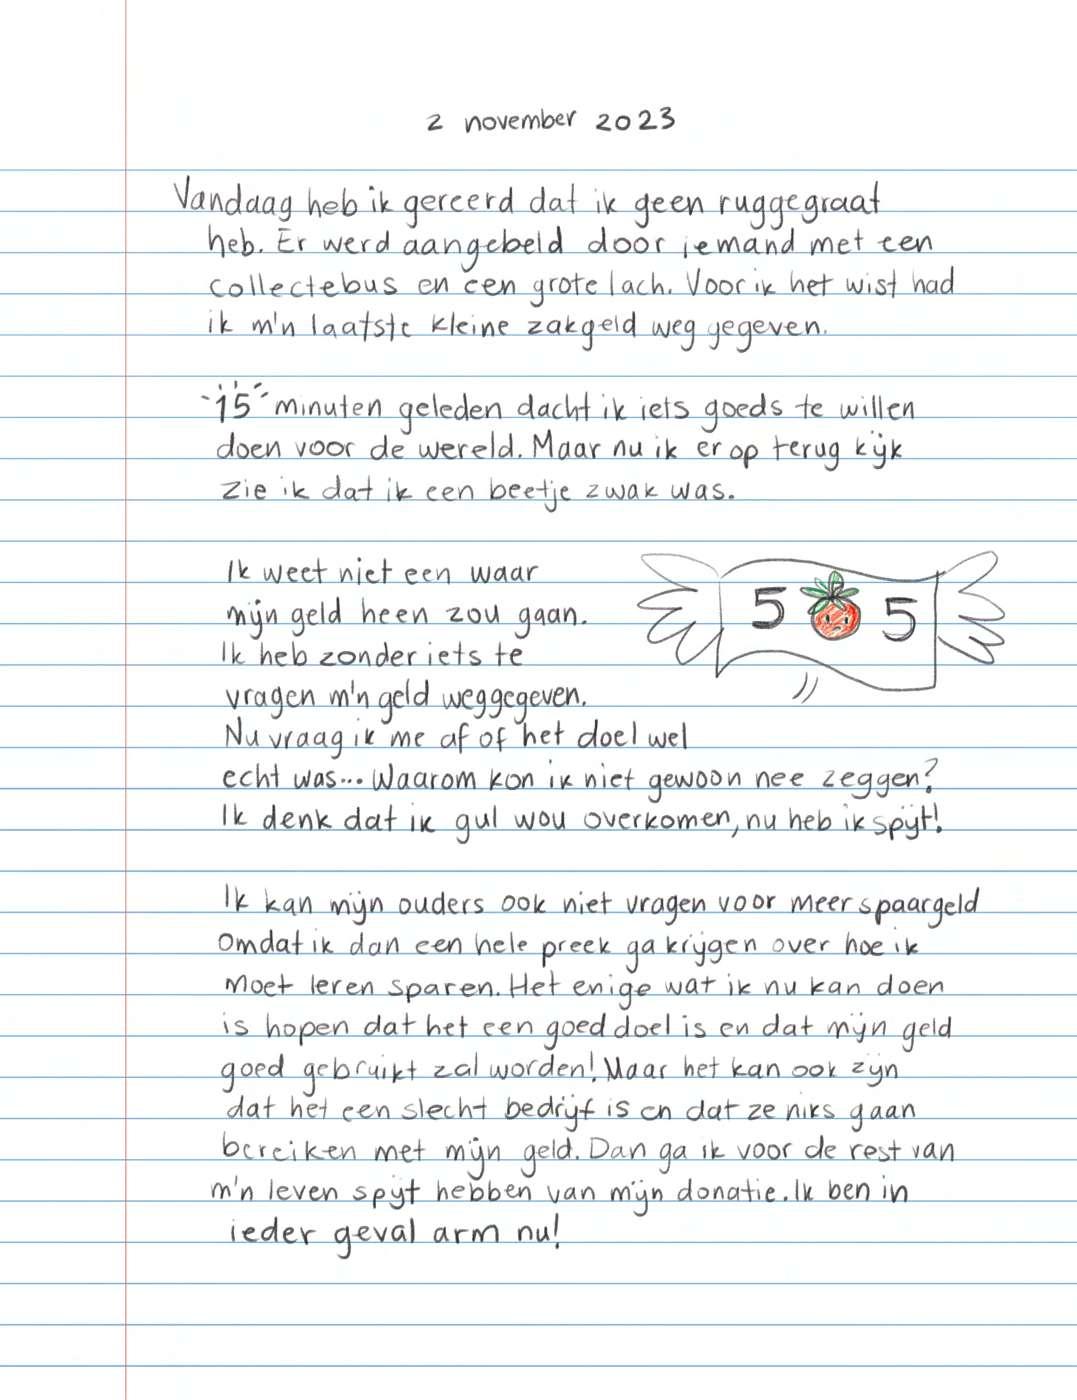 2 november 2023
Vandaag heb ik gereerd dat ik geen ruggegraat
heb. Er werd aangebeld door iemand met een
collectebus en een grote lach. Voor ik het wist had
ik m'n laatste kleine zakgeld weg gegeven.
15 minuten geleden dacht ik iets goeds te willen
doen voor de wereld. Maar nu ik er op terug kijk
zie ik dat ik een beetje zwak was.
Ik weet niet een waar
mijn geld heen zou gaan.
Ik heb zonder iets te
vragen m'n geld weggegeven.
5 5
Nu vraag ik me af of het doel wel
echt was... Waarom kon ik niet gewoon nee zeggen?
Ik denk dat ik gul wou overkomen, nu heb ik spijt!
Ik kan mijn ouders ook niet vragen voor meer spaargeld
omdat ik dan een hele preek ga krijgen over hoe ik
moet leren sparen. Het enige wat ik nu kan doen
is hopen dat het een goed doel is en dat mijn geld
goed gebruikt zal worden! Maar het kan ook zijn
dat het een slecht bedrijf is en dat ze niks gaan
bereiken met mijn geld. Dan ga ik voor de rest van
m'n leven spijt hebben van mijn donatie. Ik ben in
ieder geval arm nu!